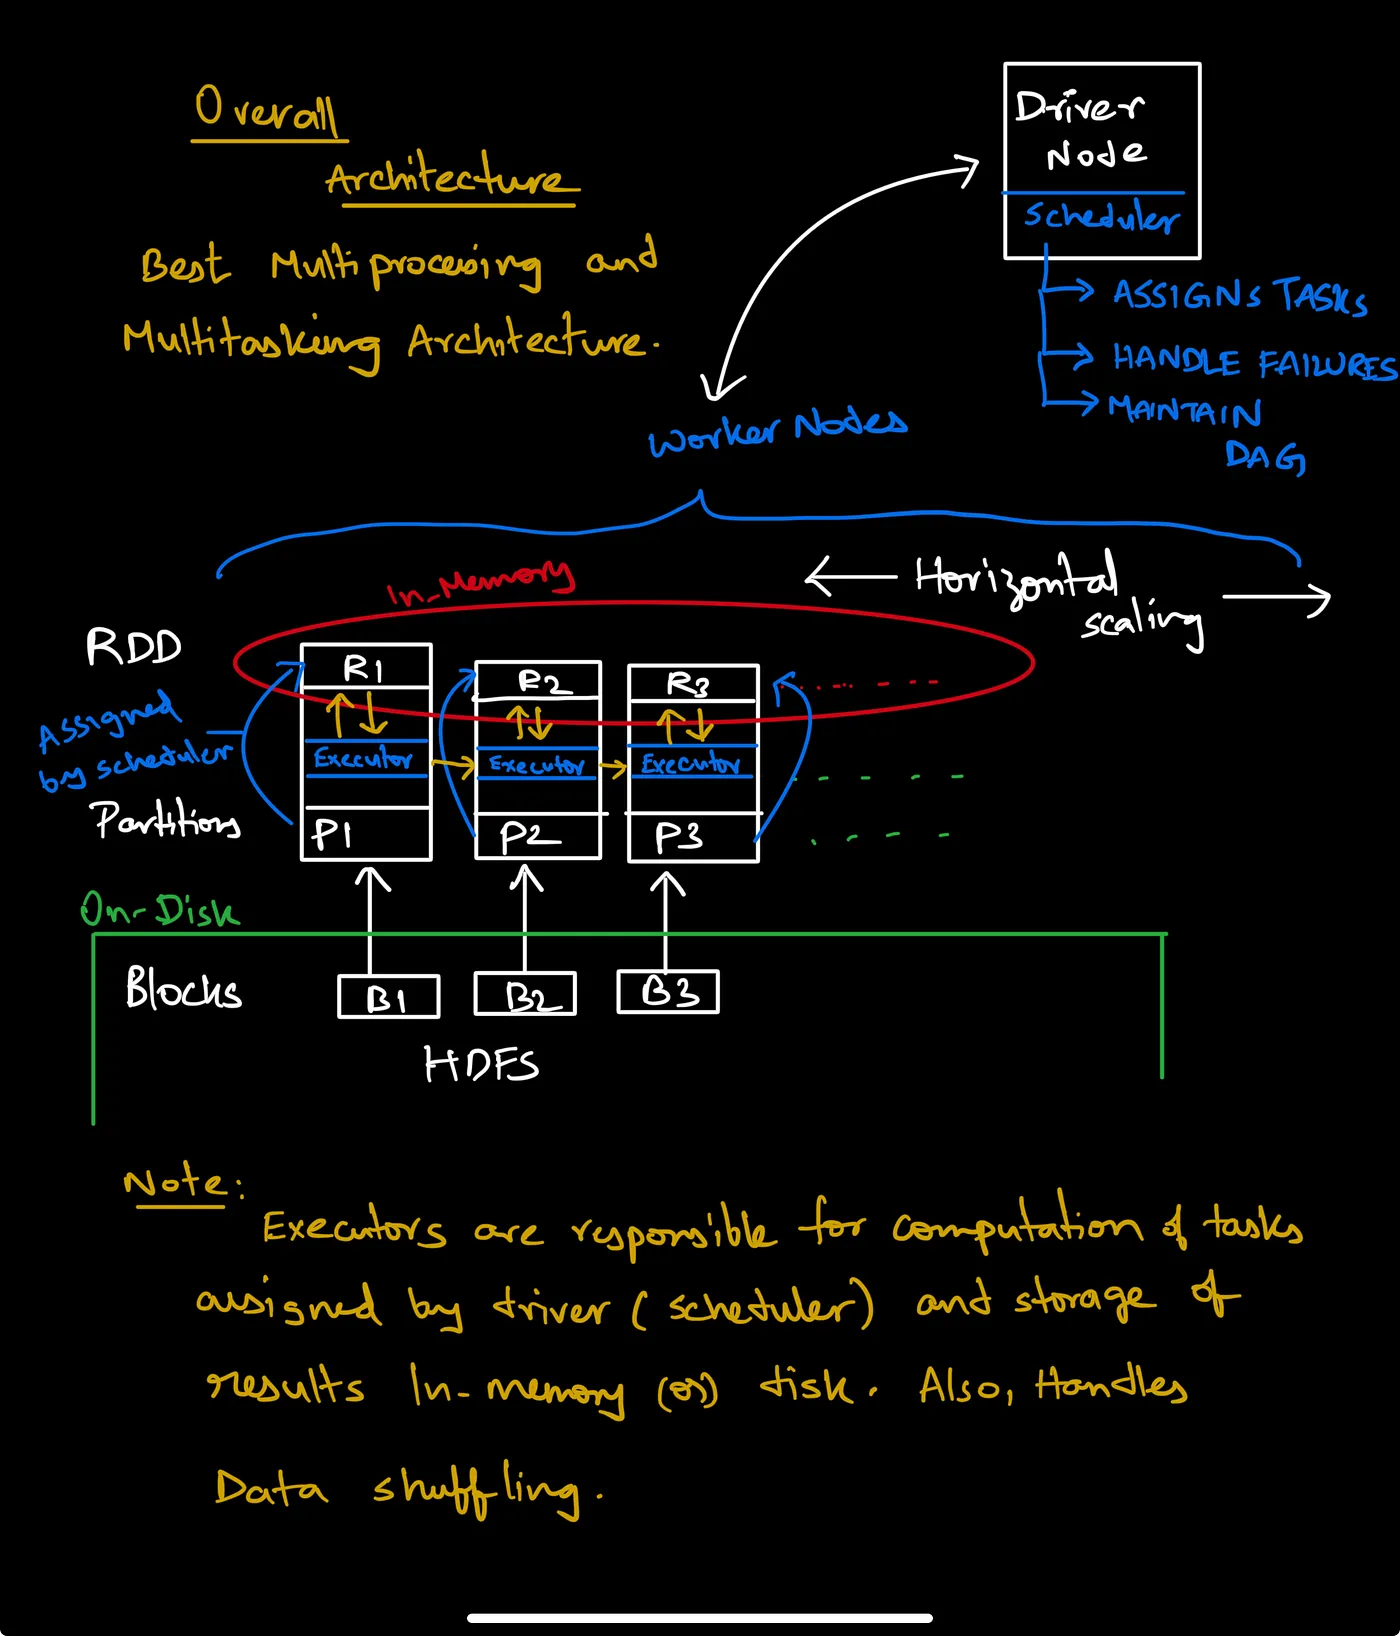 Overall
Architecture
Best Multiprocessing and
Multitasking Architecture.
Driver
Node
Scheduler
ASSIGNS TASKS
HANDLE FAILURES
MAINTAIN
DAG
Worker Nodes
In_Memory
Horizontal
scaling
RDD
R1
R2
R3
Assigned
by scheduler
Executor
Executor
Executor
Partitions
P1
P2
P3
On-Disk
Blocks
B1
B2
B3
HDFS
Note:
Executors are responsible for computation of tasks
assigned by driver (scheduler) and storage of
results In-memory (or) disk. Also, Handles
Data shuffling.